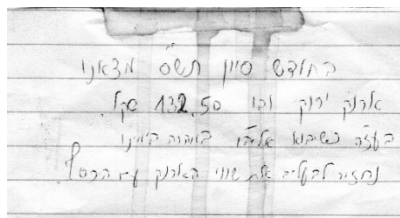 בחודש סיון תש"ס מצאנו
ארנק ירוק ובו 132.50 שקל.
בעז"ה כשיבוא אליהו במהרה בימינו
נחזיר לבעליו את שווי הארנק עם הכסף